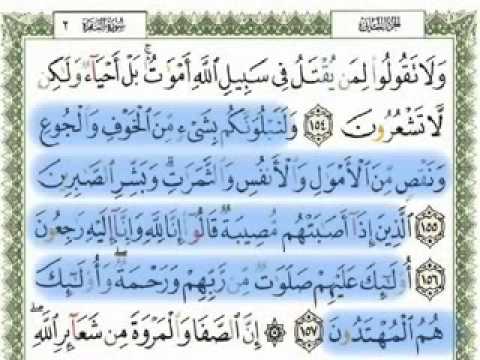 الجزء الثاني سورة البقرة ٢
وَلَا تَقُولُوا۟ لِمَن يُقْتَلُ فِى سَبِيلِ ٱللَّهِ أَمْوَٰتٌۢ ۚ بَلْ أَحْيَآءٌ وَلَٰكِن
لَّا تَشْعُرُونَ ١٥٤ وَلَنَبْلُوَنَّكُم بِشَىْءٍ مِّنَ ٱلْخَوْفِ وَٱلْجُوعِ
وَنَقْصٍ مِّنَ ٱلْأَمْوَٰلِ وَٱلْأَنفُسِ وَٱلثَّمَرَٰتِ ۗ وَبَشِّرِ ٱلصَّٰبِرِينَ
١٥٥ ٱلَّذِينَ إِذَآ أَصَٰبَتْهُم مُّصِيبَةٌ قَالُوٓا۟ إِنَّا لِلَّهِ وَإِنَّآ إِلَيْهِ رَٰجِعُونَ
١٥٦ أُو۟لَٰٓئِكَ عَلَيْهِمْ صَلَوَٰتٌ مِّن رَّبِّهِمْ وَرَحْمَةٌ ۖ وَأُو۟لَٰٓئِكَ
هُمُ ٱلْمُهْتَدُونَ ١٥٧ ۞ إِنَّ ٱلصَّفَا وَٱلْمَرْوَةَ مِن شَعَآئِرِ ٱللَّهِ ۖ